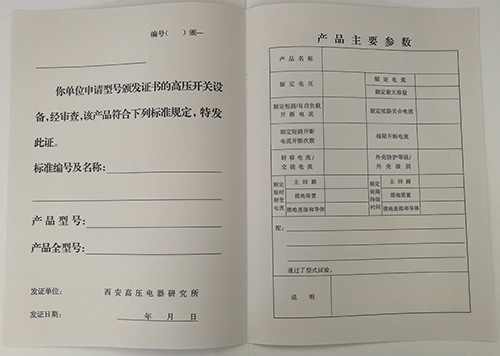 编号(　　)颁—
你单位申请型号颁发证书的高压开关设
备,经审查,该产品符合下列标准规定，特发
此证。
标准编号及名称:
产品型号:
产品全型号:
发证单位:　西安高压电器研究所
发证日期:　年　月　日
产品主要参数
产品名称
额定电压
额定电流
额定最大容量
额定短路/有功负载
开断电流
额定短路关合电流
额定短路开断
电流开断次数
极限开断电流
转移电流/
交接电流
外壳防护等级/
外壳级别
额定
短时
耐受
电流
主回路
接地装置
接地连接和导体
额定
短路
持续
时间
主回路
接地装置
接地连接和导体
配:
通过了型式试验。
说明